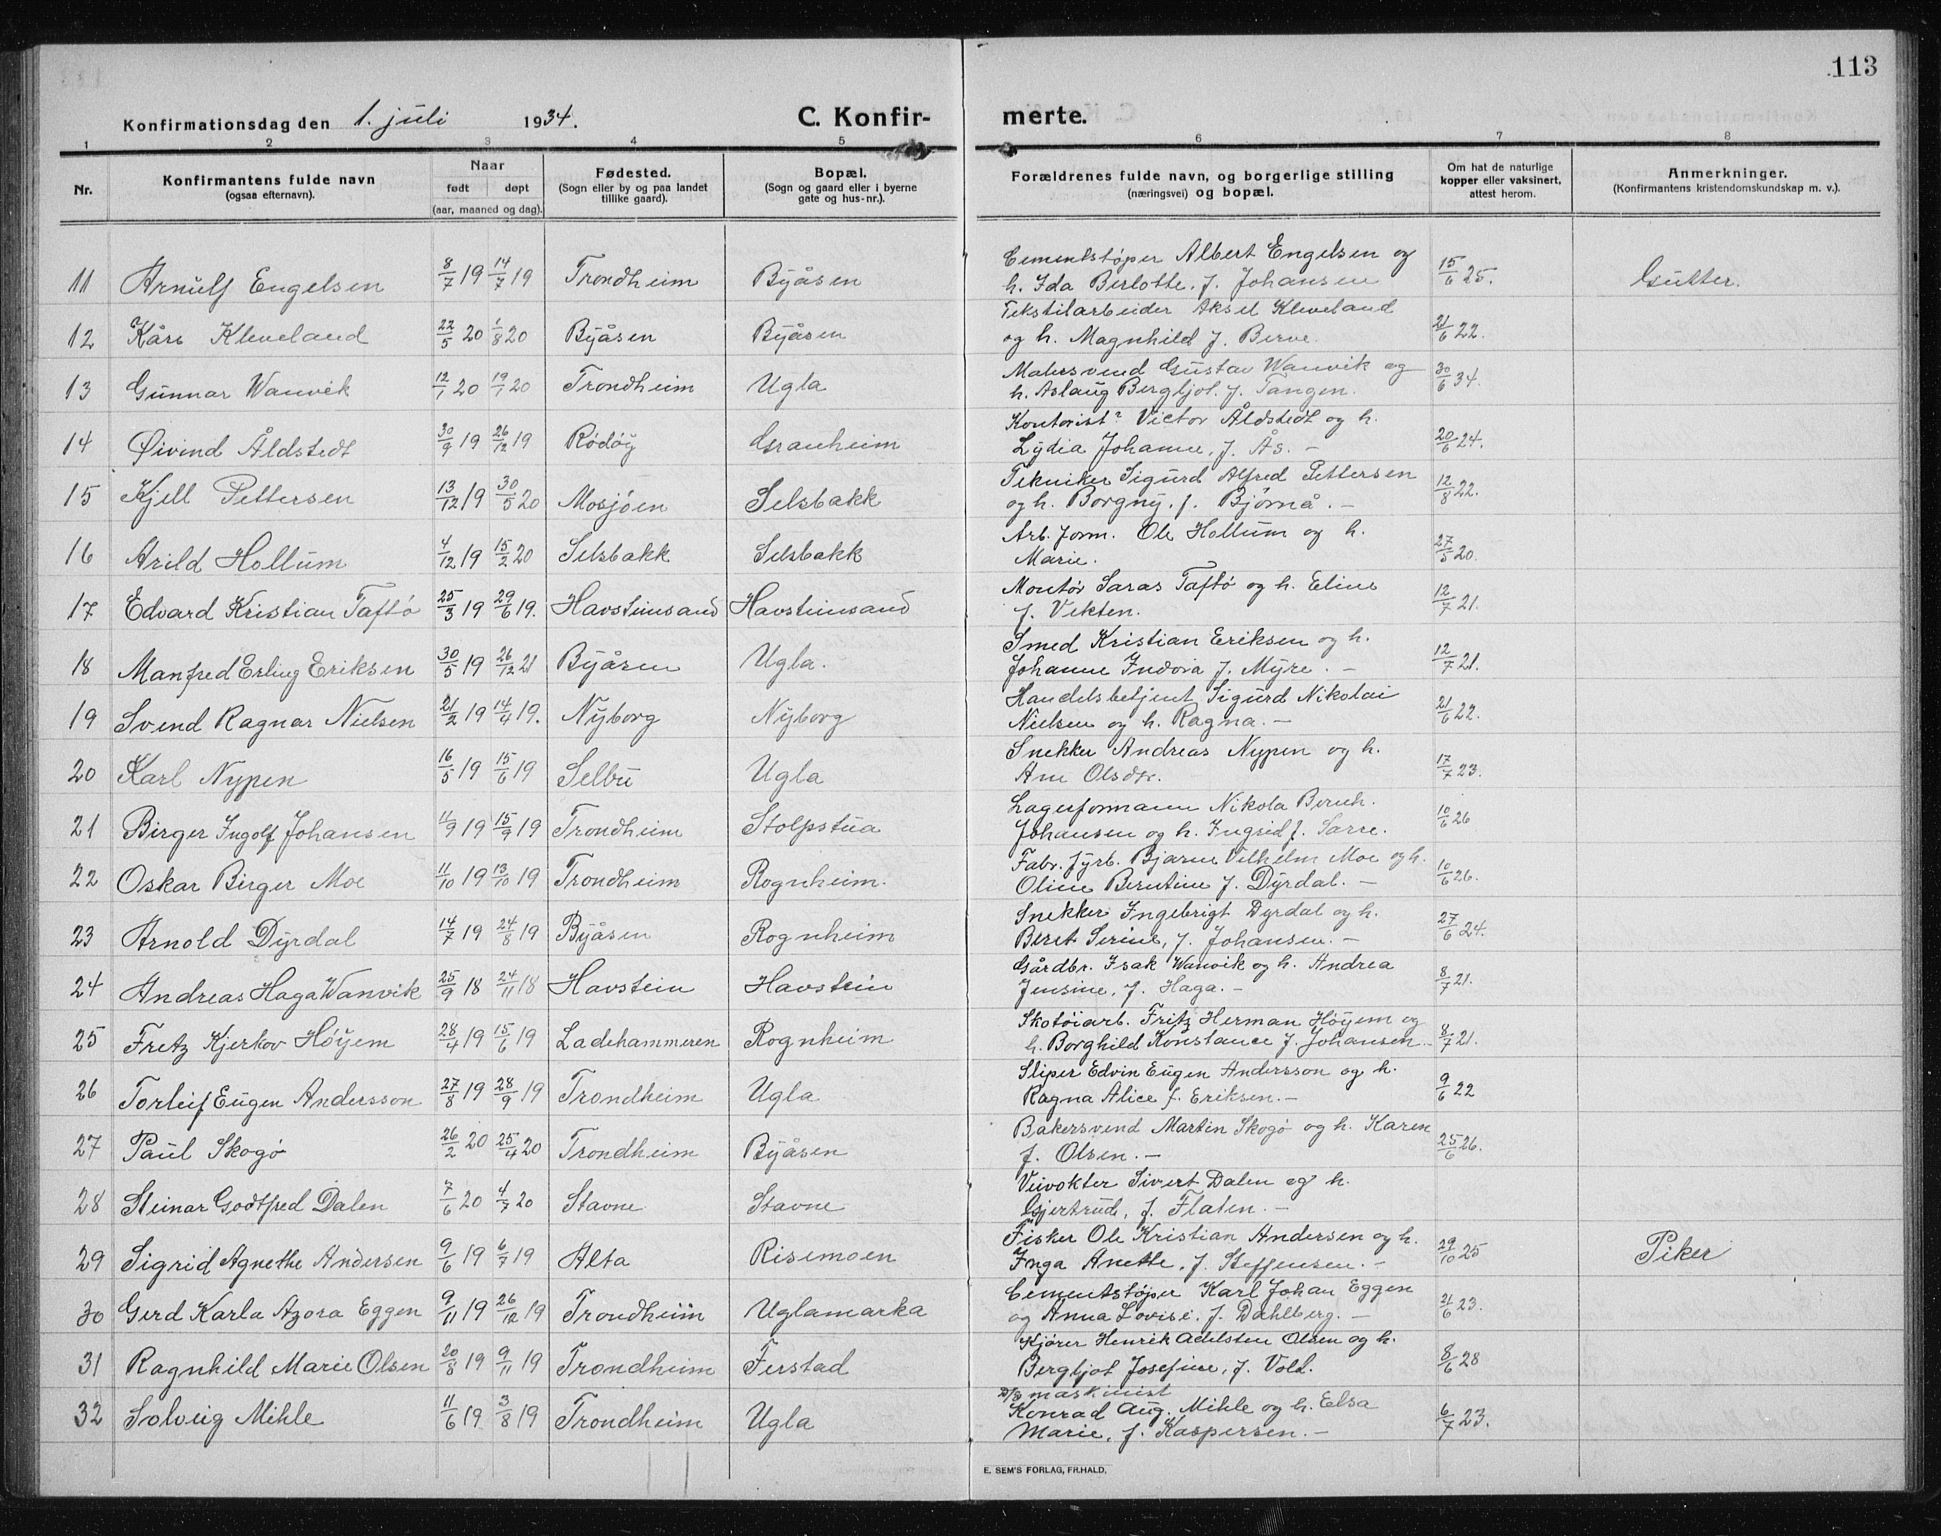 113
Konfirmationsdag den 1. juli 1934. C. Konfirmerte.
1 2 3 4 5 6 7 8
Nr. Konfirmantens fulde navn (ogsaa efternavn). Naar født døpt (aar, maaned og dag). Fødested. (Sogn eller by og paa landet tillike gaard). Bopæl. (Sogn og gaard eller i byerne gate og hus-nr.). Forældrenes fulde navn, og borgerlige stilling (næringsvei) og bopæl. Om hat de naturlige kopper eller vaksinert, attest herom. Anmerkninger. (Konfirmantens kristendomskundskap m. v.).
11 Arnulf Engelsen 8/7 19 14/7 19 Trondheim Byåsen Cementstøper Albert Engelsen og h. Ida Berlotte, f. Johansen 15/6 25. Gutter.
12 Kåre Kleveland 22/5 20 1/8 20 Byåsen Byåsen Tekstilarbeider Aksel Kleveland og h. Magnhild f. Berve. 21/6 22.
13 Gunnar Wanvik 12/1 20 19/7 20 Trondheim Ugla Malersvend Gustav Wanvik og h. Aslaug Bergljot. f. Tangen. 30/6 34.
14 Øivind Åldstedt 30/9 19 26/12 19 Rödöy Granheim Kontorist Victor Åldstedt og h. Lydia Johanne, f. Ås. – 20/6 24.
15 Kjell Pettersen 13/12 19 30/5 20 Mosjöen Selsbakk Tekniker Sigurd Alfred Pettersen og h. Borgny. f. Bjørnå. – 12/8 22.
16 Arild Hollum 4/12 19 15/2 20 Selsbakk Selsbakk Arb. form. Ole Hollum og h. Marie. 27/5 20.
17 Edvard Kristian Taftö 25/3 19 29/6 19. Havsteinsand Havsteinsand Montør Saras Taftö og h. Eline f. Vikten. 12/7 21.
18 Manfred Erling Eriksen 30/5 19 26/12 21 Byåsen Ugla. Smed Kristian Eriksen og h. Johanne Indova f. Myre. – 12/7 21.
19 Svend Ragnar Nielsen 21/2 19 14/4 19. Nyborg Nyborg Handelsbetjent Sigurd Nikolai Nielsen og h. Ragna. – 21/6 22.
20 Karl Nypen 16/5 19 15/6 19 Selbu Ugla Snekker Andreas Nypen og h. Ane Olsdtr. 17/7 23.
21 Birger Ingolf Johansen 11/9 19 15/9 19 Trondheim Stolpstua Lagerformann Nikola Bernh. Johansen og h. Ingrid f. Sarre. 10/6 26
22 Oskar Birger Moe 11/10 19 13/10 19 Trondheim Rognheim. Fabr. fyrb. Bjarne Vilhelm Moe og h. Oline Berntine f. Dyrdal. – 10/6 26.
23 Arnold Dyrdal 14/7 19 24/8 19 Byåsen Rognheim Snekker Ingebrigt Dyrdal og h. Beret Serine, f. Johansen. – 27/6 24.
24 Andreas Haga Wanvik 25/9 18 24/11 18 Havstein Havstein Gårdbr. Isak Wanvik og h. Andrea Jensine, f. Haga. – 8/7 21.
25 Fretz Kjerkov Höyem 28/4 19 15/6 19 Ladehammeren Rognheim Skotöiarb. Fritz Herman Höyem og h. Borghild Konstance f. Johansen – 8/7 21.
26 Torleif Eugen Andersson 27/8 19 28/9 19 Trondheim Ugla Sliper Edvin Eugen Andersson og h. Ragna Alice f. Eriksen. – 9/6 22
27 Paul Skogö 26/2 20 25/4 20 Trondheim Byåsen Bakersvend Martin Skogö og h. Karen f. Olsen. – 25/6 26.
28 Steinar Godtfred Dalen 7/6 20 4/7 20 Stavne Stavne Veivokter Sivert Dalen og h. Gjertrud, f. Flaten. –
29 Sigrid Agnethe Andersen 9/6 19 6/7 19 Alta Risemoen Fisker Ole Kristian Andersen og h. Inga Anette, f. Steffensen. – 29/10 25 Piker
30 Gerd Karla Azora Eggen 9/11 19 26/12 19 Trondheim Uglamarka Cementstøper Karl Johan Eggen og Anna Lovise. f. Dahlberg. – 21/6 23.
31 Ragnhild Marie Olsen 20/8 19 9/11 19 Trondheim Ferstad Kjører Henrik Adelsten Olsen og h. Bergljot Josefine, f. Vold. 8/6 28
32 Solveig Mihle 11/6 19 3/8 19 Trondheim Ugla maskinist Konrad Aug. Mihle og h. Elsa Marie, f. Kaspersen. – 6/7 23.
E. SEM'S FORLAG, FR.HALD.